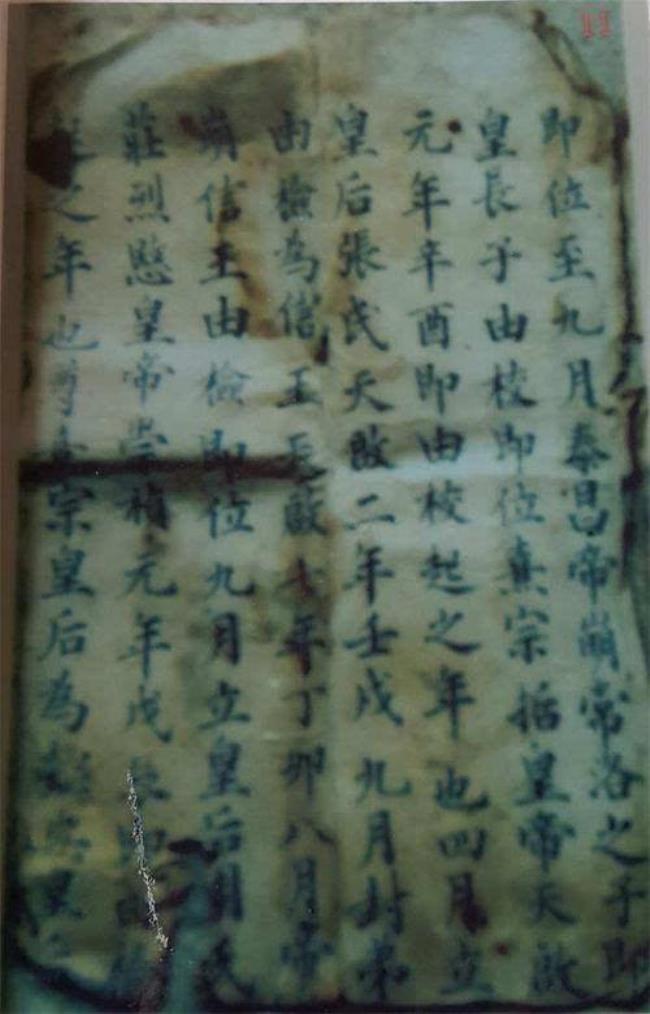 即位至九月泰昌帝崩常洛之子即
皇長子由校即位熹宗括皇帝天啟
元年辛酉即由校起之年也四月立
皇后張氏天啟二年壬戌九月封弟
由檢為信王天啟七年丁卯八月帝
崩信王由檢即位九月立皇后周氏
莊烈愍皇帝崇禎元年戊辰即
之年也尊熹宗皇后為懿安皇